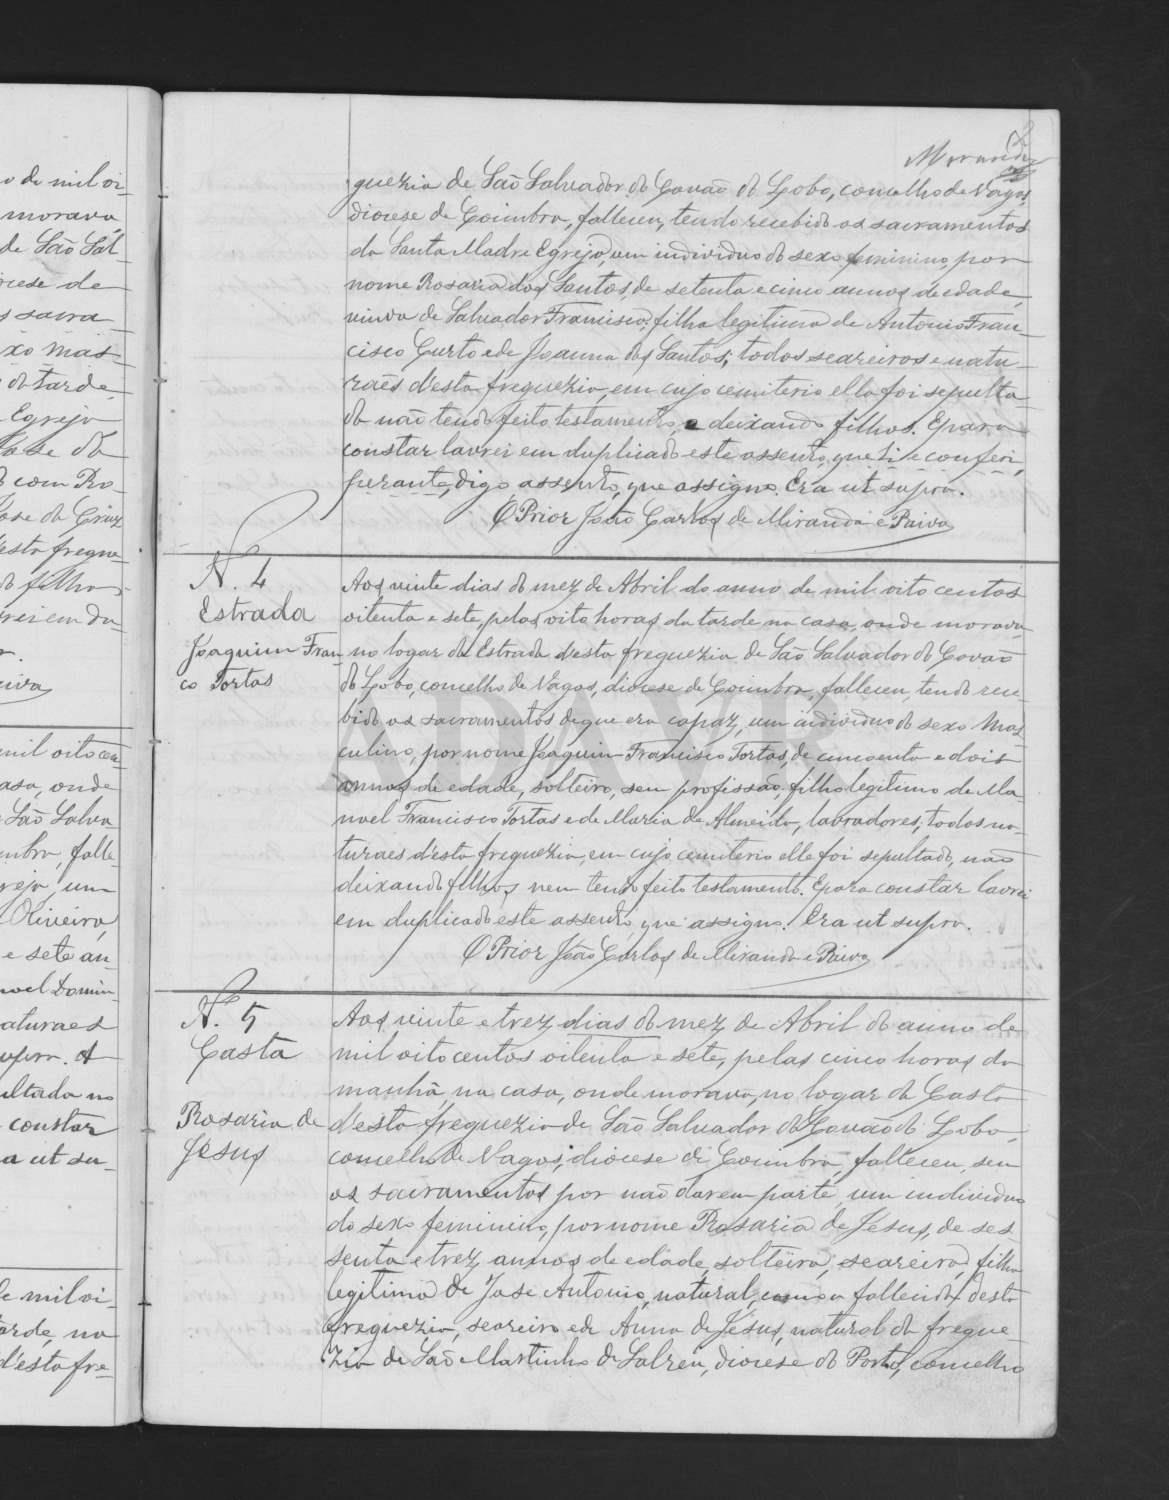 o de mil oi-
morava,
de São Sal-
diocese de
sacra-
xo mas-
da tarde,
Egreja
com Ro-
José da Cruz
d'esta fregue-
filhos.
mil oito cen-
casa, onde
São Salva-
Coimbra, falle-
um
Oliveira,
e sete an-
noel Domin-
naturaes
supra. A
sepultada no
constar
ra ut su-
de mil oi-
tarde, na
d'esta fre-
2
Miranda
guezia de São Salvador do Covão do Lobo, concelho de Vagos,
diocese de Coimbra, falleceu, tendo recebido os sacramentos
da Santa Madre Egreja, um individuo do sexo feminino, por
nome Rosaria dos Santos, de setenta e cinco annos de edade,
viuva de Salvador Francisco, filha legitima de Antonio Fran-
cisco Curto e de Joanna dos Santos, todos seareiros e natu-
raes d'esta freguezia, em cujo cemiterio ella foi sepulta-
da não tendo feito testamento, e deixando filhos. E para
constar lavrei em duplicado este assento, que li e conferi,
perante, digo assento, que assigno. Era ut supra.
O Prior João Carlos de Miranda e Paiva
N. 4
Estrada
Joaquim Fran-
co Tortas
Aos vinte dias do mez de Abril do anno de mil oito centos
oitenta e sete, pelas oito horas da tarde na casa, onde morava,
no logar da Estrada d'esta freguezia de São Salvador do Covão
do Lobo, concelho de Vagos, diocese de Coimbra, falleceu, tendo rece-
bido os sacramentos de que era capaz, um individuo do sexo mas-
culino, por nome Joaquim Francisco Tortas, de cincoenta e dois
annos de edade, solteiro, sem profissão, filho legitimo de Ma-
noel Francisco Tortas e de Maria de Almeida, lavradores, todos na-
turaes d'esta freguezia, em cujo cemiterio elle foi sepultado, não
deixando filhos nem tendo feito testamento. E para constar lavrei
em duplicado este assento, que assigno. Era ut supra.
O Prior João Carlos de Miranda e Paiva
N. 5
Casta
Rosaria de
Jesus
Aos vinte e trez dias do mez de Abril do anno de
mil oito centos oitenta e sete, pelas cinco horas da
manhã, na casa, onde morava, no logar da Casta
d'esta freguezia de São Salvador do Covão do Lobo,
concelho de Vagos, diocese de Coimbra, falleceu, sem
os sacramentos por não darem parte, um individuo
do sexo feminino, por nome Rosaria de Jesus, de ses-
senta e trez annos de edade, solteira, seareira, filha
legitima de José Antonio, natural, como a fallecida, desta
freguezia, seareiro e de Anna de Jesus, natural da fregue-
zia de São Martinho de Salreu, diocese do Porto, concelho
ADAVR